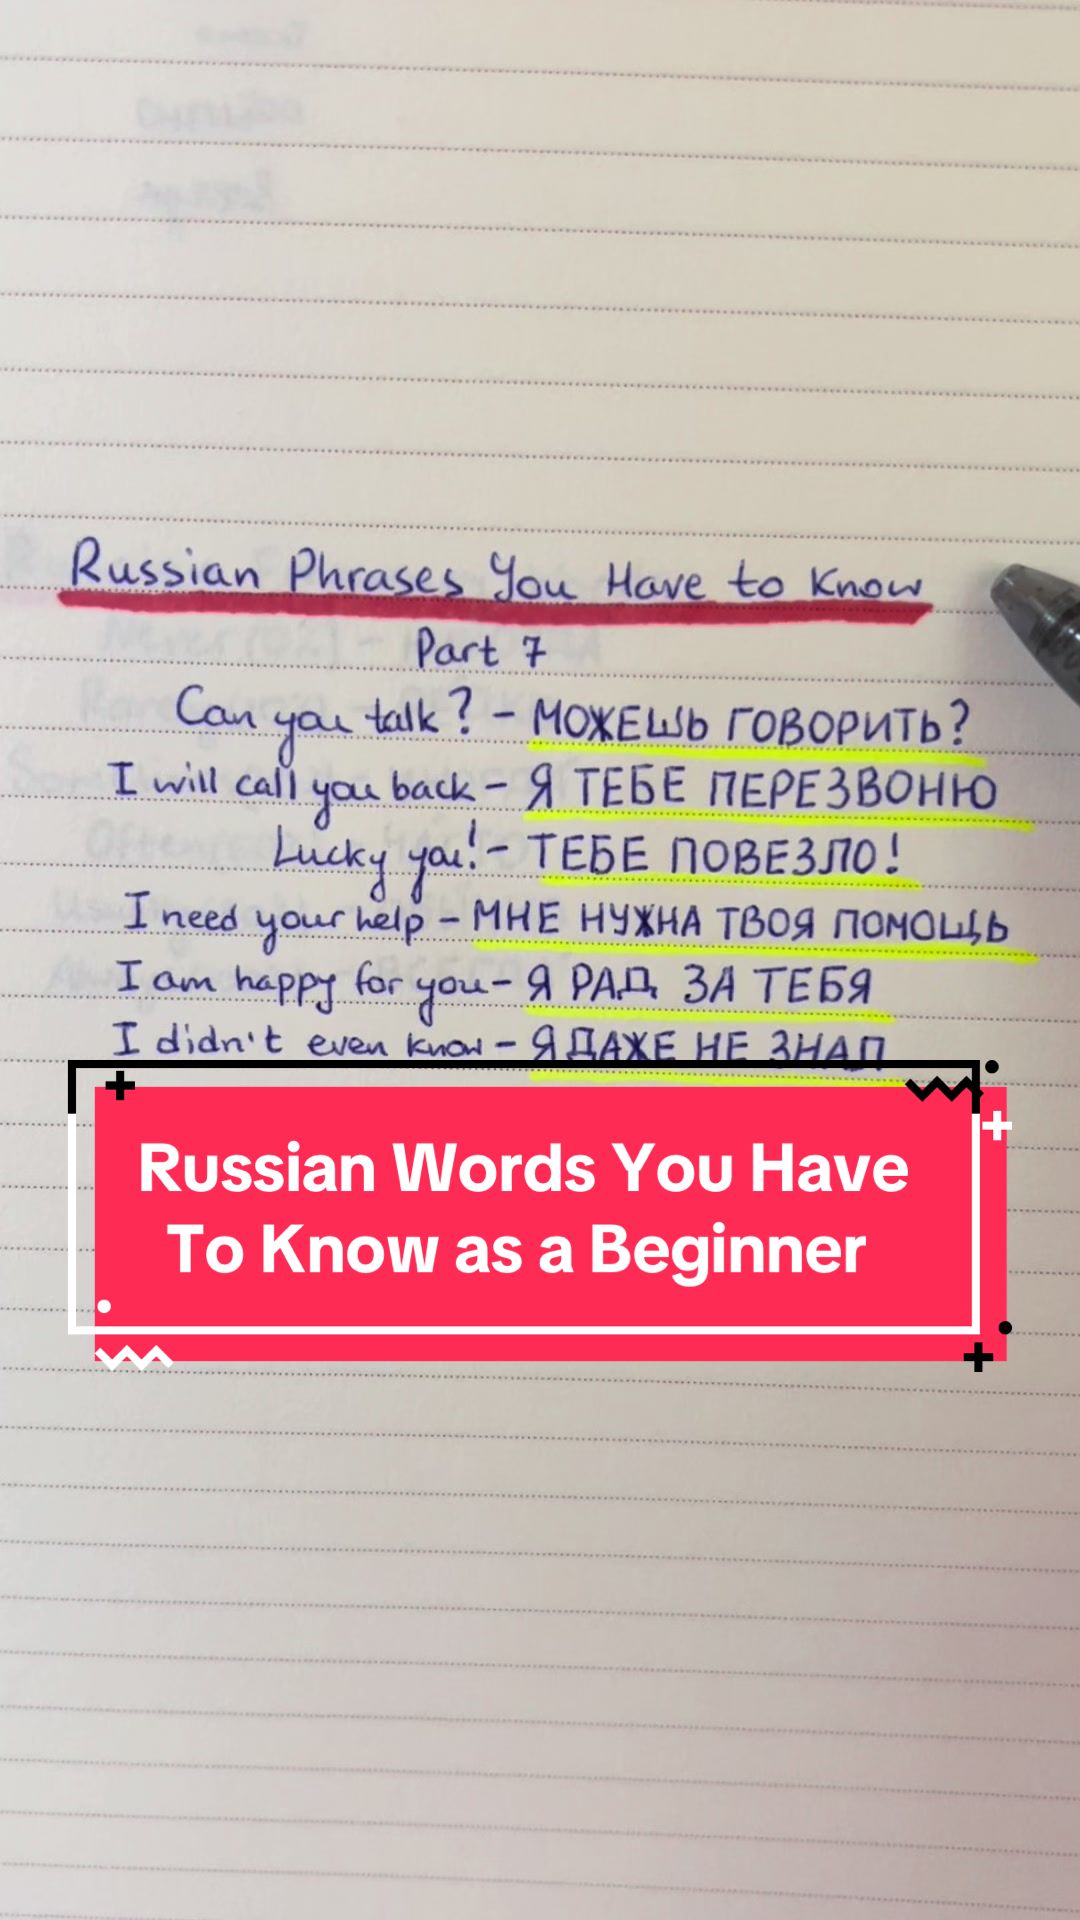 Russian Phrases You Have to Know
Part 7
Can you talk? - МОЖЕШЬ ГОВОРИТЬ?
I will call you back - Я ТЕБЕ ПЕРЕЗВОНЮ
Lucky you! - ТЕБЕ ПОВЕЗЛО!
I need your help - МНЕ НУЖНА ТВОЯ ПОМОЩЬ
I am happy for you - Я РАД ЗА ТЕБЯ
I didn't even know - Я ДАЖЕ НЕ ЗНАЛ
Russian Words You Have
To Know as a Beginner